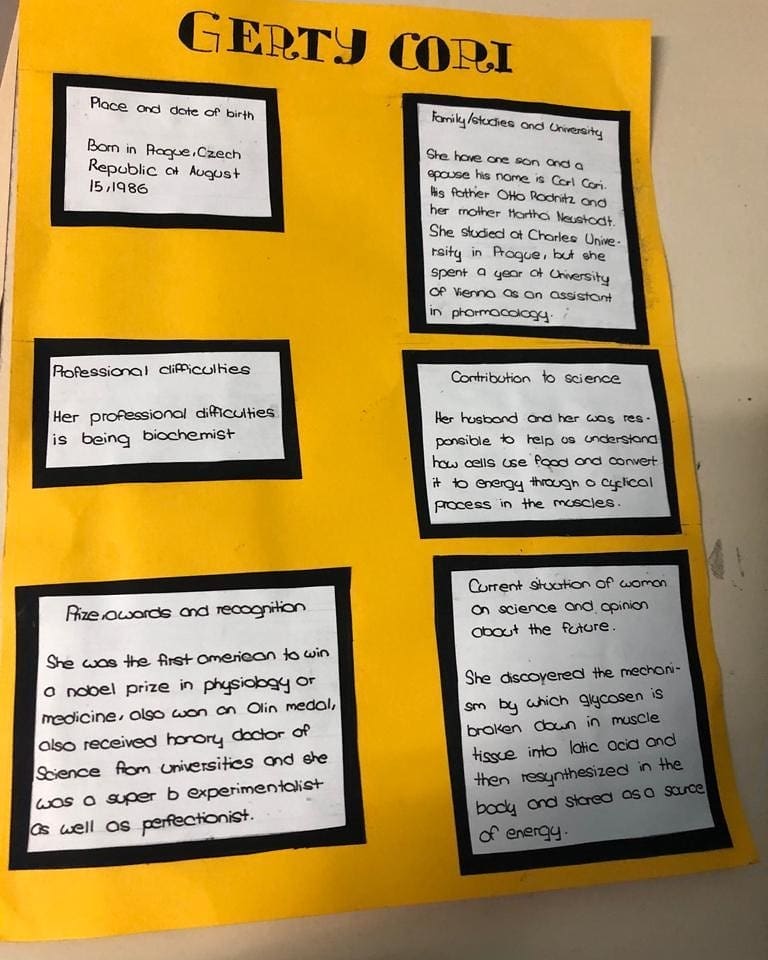 GERTY CORI
Place and date of birth
Born in Prague, Czech
Republic at August
15, 1986
Family/studies and University
She have one son and a
spouse his name is Carl Cori.
His father Otto Radnitz and
her mother Martha Neustadt.
She studied at Charles Unive-
rsity in Prague, but she
spent a year at University
of Vienna as an assistant
in pharmacology.
Professional difficulties
Her professional difficulties
is being biochemist
Contribution to science
Her husband and her was res-
ponsible to help us understand
how cells use food and convert
it to energy through a cyclical
process in the muscles.
Prize, awards and recognition
She was the first american to win
a nobel prize in physiology or
medicine, also won an Olin medal,
also received honory doctor of
Science from universities and she
was a super b experimentalist
as well as perfectionist.
Current situation of woman
on science and opinion
about the future.
She discovered the mechani-
sm by which glycosen is
broken down in muscle
tissue into latic acid and
then resynthesized in the
body and stored as a source
of energy.